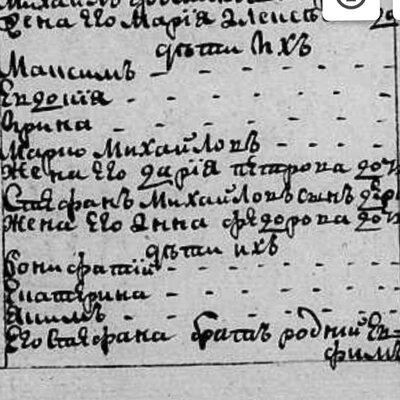 жена его Мария Алексѣ
дѣти ихъ
Максимъ
Евдокия
Ирина
Марко Михайловъ
Жена его дария петрова доч
Стефанъ Михайловъ сынъ
жена его Анна федорова доч
дѣти ихъ
бонифатий
Екатерина
Якимъ
Его Стефана братъ родний Ев-
фимъ